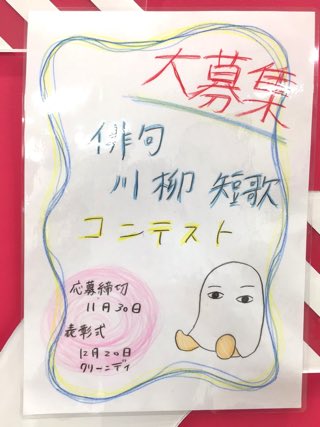 大募集
俳句
川柳 短歌
コンテスト
応募締切
11月30日
表彰式
12月20日
クリーンデイ